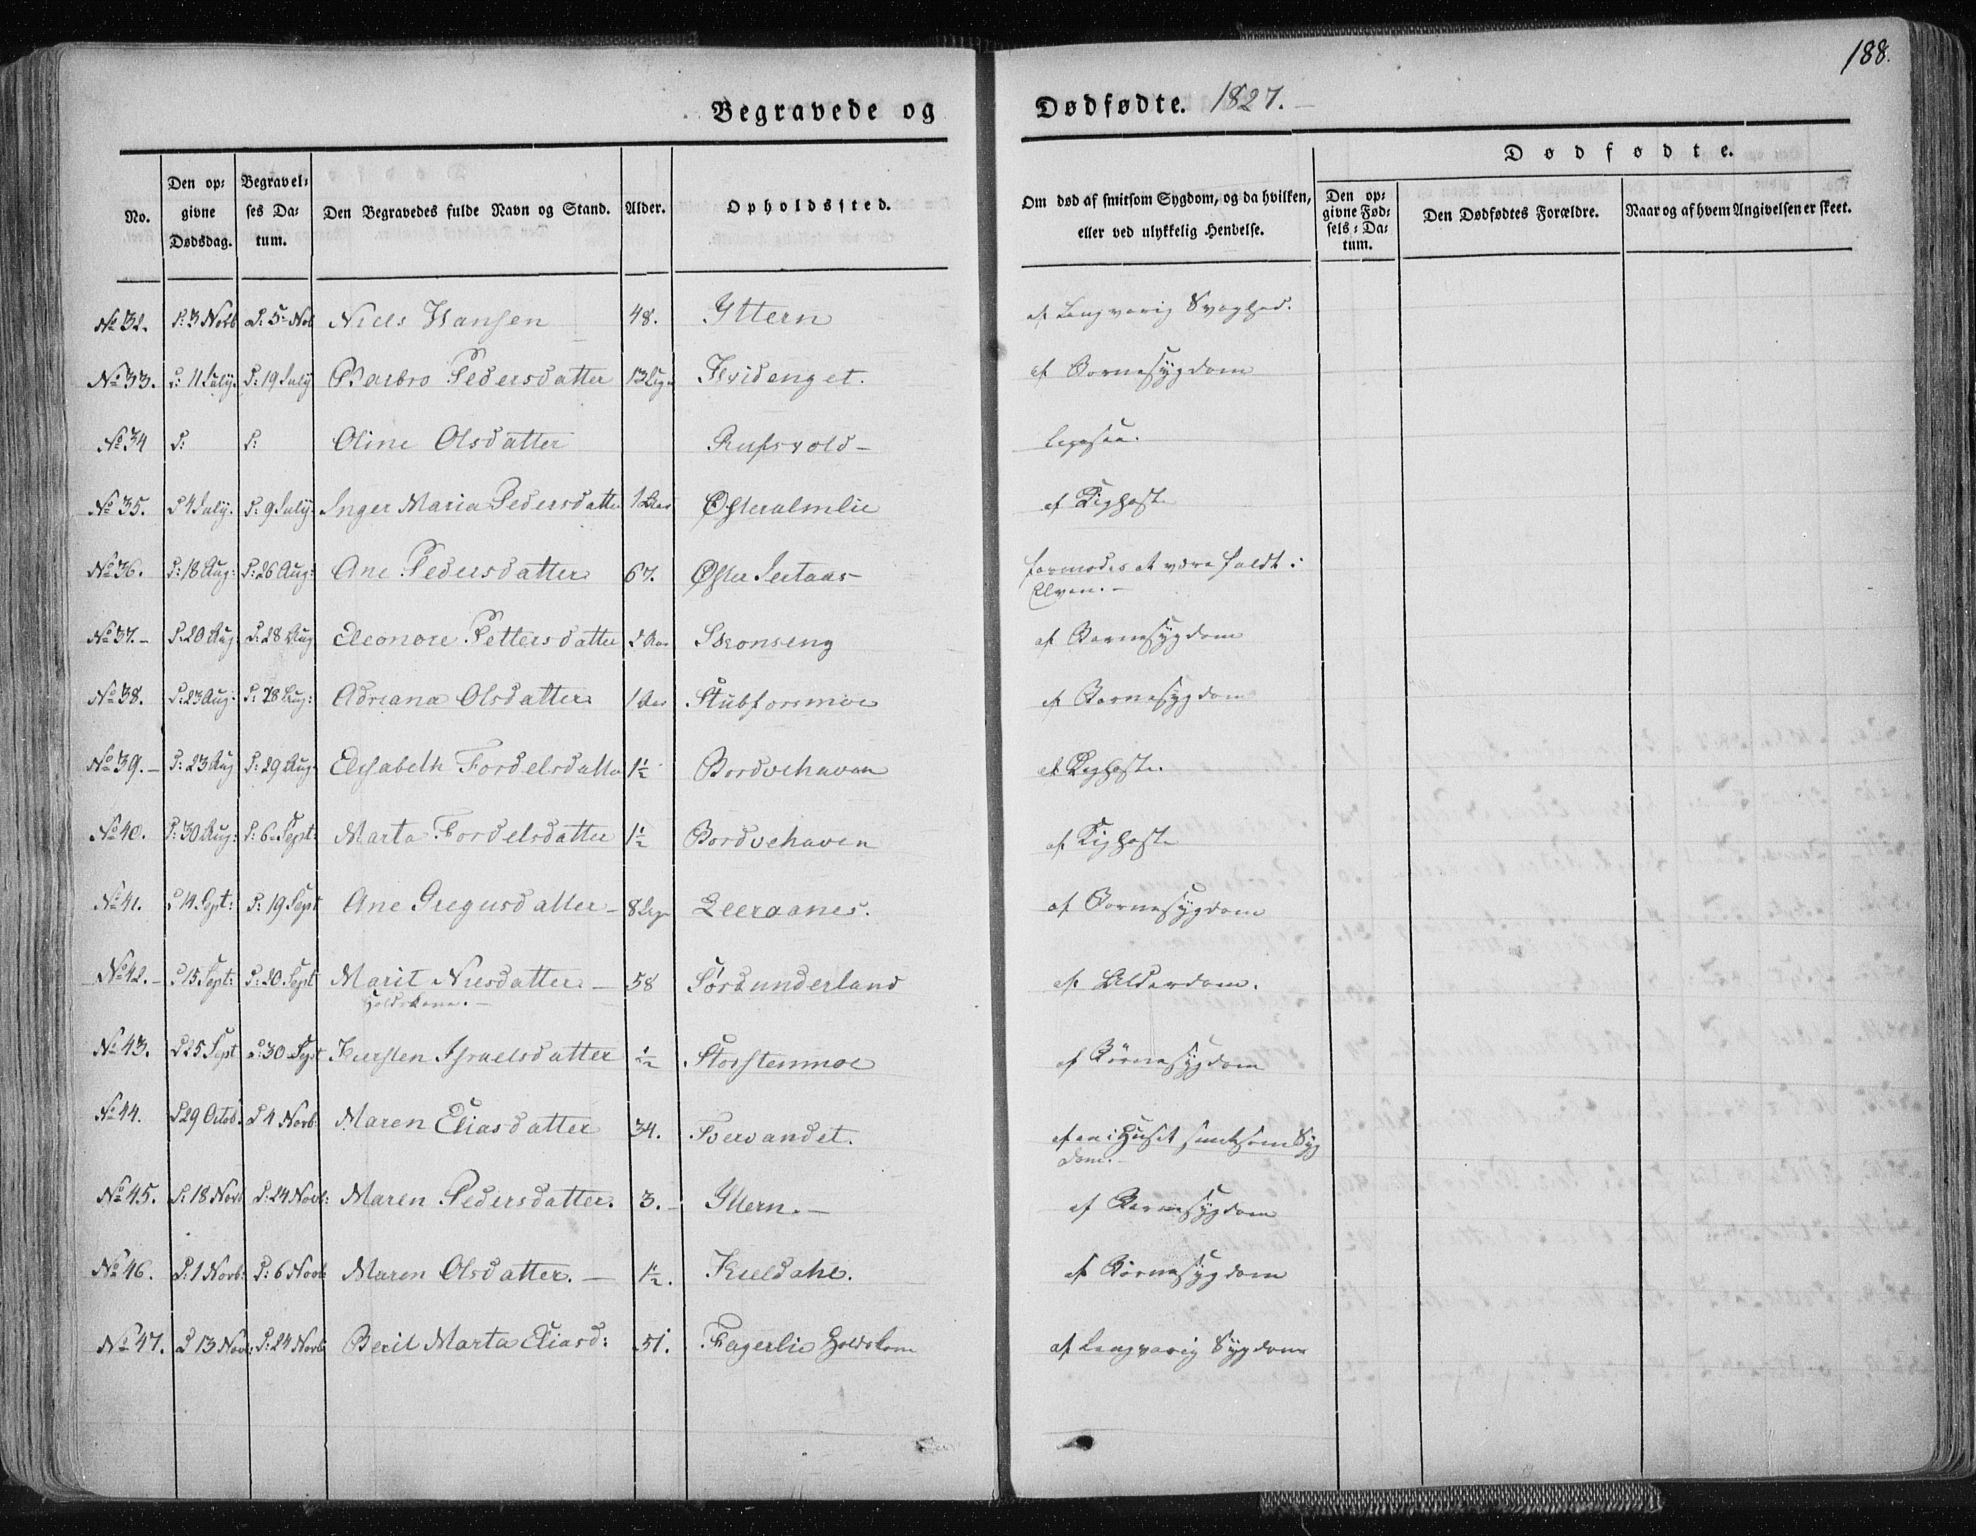 188.
Begravede og Dødfødte. 1827.
Dødfødte.
No.
Den opgivne Dødsdag.
Begravelses Datum.
Den Begravedes fulde Navn og Stand.
Alder.
Opholdssted.
Om død af smitsom Sygdom, og da hvilken, eller ved ulykkelig Hendelse.
Den opgivne Fødsels-Datum.
Den Dødfødtes Forældre.
Naar og af hvem Angivelsen er skeet.
No 32. D: 3 Novb D: 5 Nob Niels Hansen 48. Yttern af Langvarig Svaghed.
No 33. D: 11 July. D: 19 July Barbro Pedersdatter Hvidenget. af Bornesygdom
No 34 D: D: Oline Olsdatter Rufsvold
No 35. D 4 July. D: 9 July. Inger Maria Pedersdatter Østeralmlie af Kighoste
No 36. D: 18 Aug: D: 26 Aug: Ane Pedersdatter 67. Øster formodes at være faldt i
Elven.
No 37. D: 20 Aug D: 28 Aug Eleonore Pettersdatter Stronseng af Bornesygdom
No 38. D: 23 Aug: D: 28 Aug: Adriana Olsdatter 1 Aar Stubforsmoe af Bornesygdom
No 39. D: 23 Aug D: 29 Aug. Elisabeth Fordelsdatter 1½ Bordvehaven af Kighoste.
No 40. D: 30 Aug: D: 6 Sept: Marta Fordelsdatter 1½ Bordvehaven af Kighoste
No 41. D 14 Sept: D: 19 Sept Ane Gregusdatter Leeraanes. af Bornesygdom
No 42. D 15 Sept: D: 20 Sept Marit Nilsdatter 58 Sørdunderland af Alderdom.
Holdskone.
No 43. D 25 Sept D: 30 Sept Kiersten Israelsdatter ½ Storstenmoe af Børnesygdom
No 44. D 29 Octob. D 4 Novb: Maren Eliasdatter 34. Tvervandet. af en i Huset smitsom Syg
dom.
No 45. D: 18 Novb D: 24 Novb: Maren Pedersdatter. 3. Yttern. af Bornesygdom
No 46. D: 1 Novb: D: 6 Novb Maren Olsdatter. ½. Kieldahl. af Børnesygdom
No 47. D 13 Nov: D: 24 Novb Berit Marta Eliasd: 51. Fagerlie Holdskone af Langvarig Sygdom